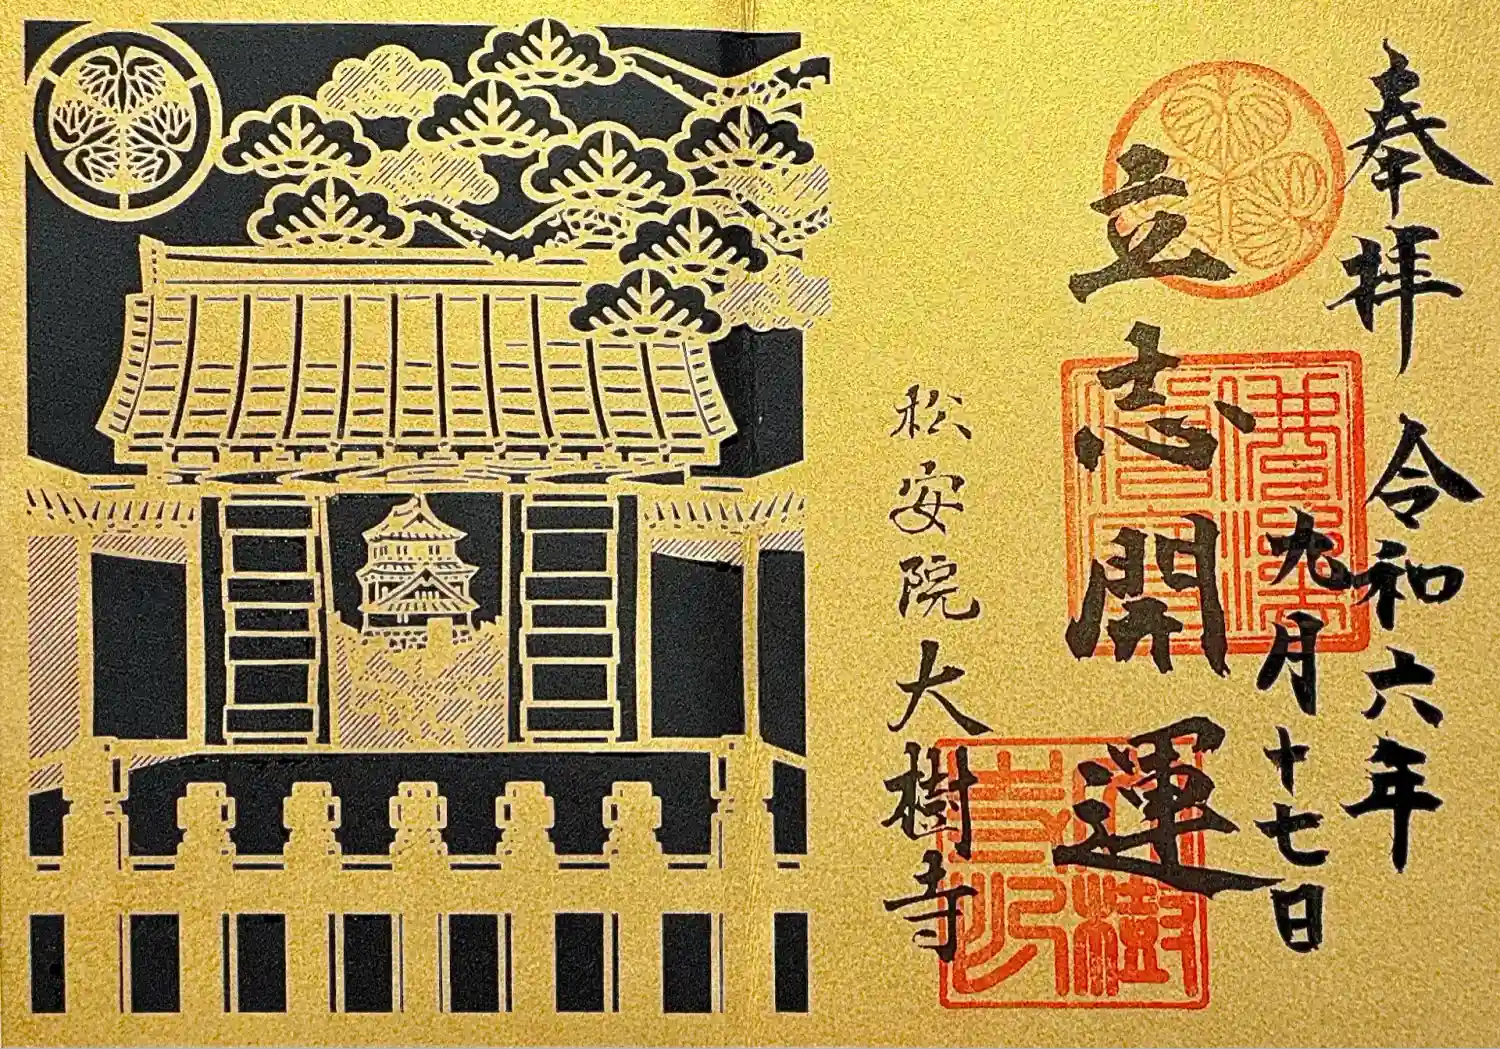 奉拝 令和六年
九月十七日
立志開運
松安院大樹寺